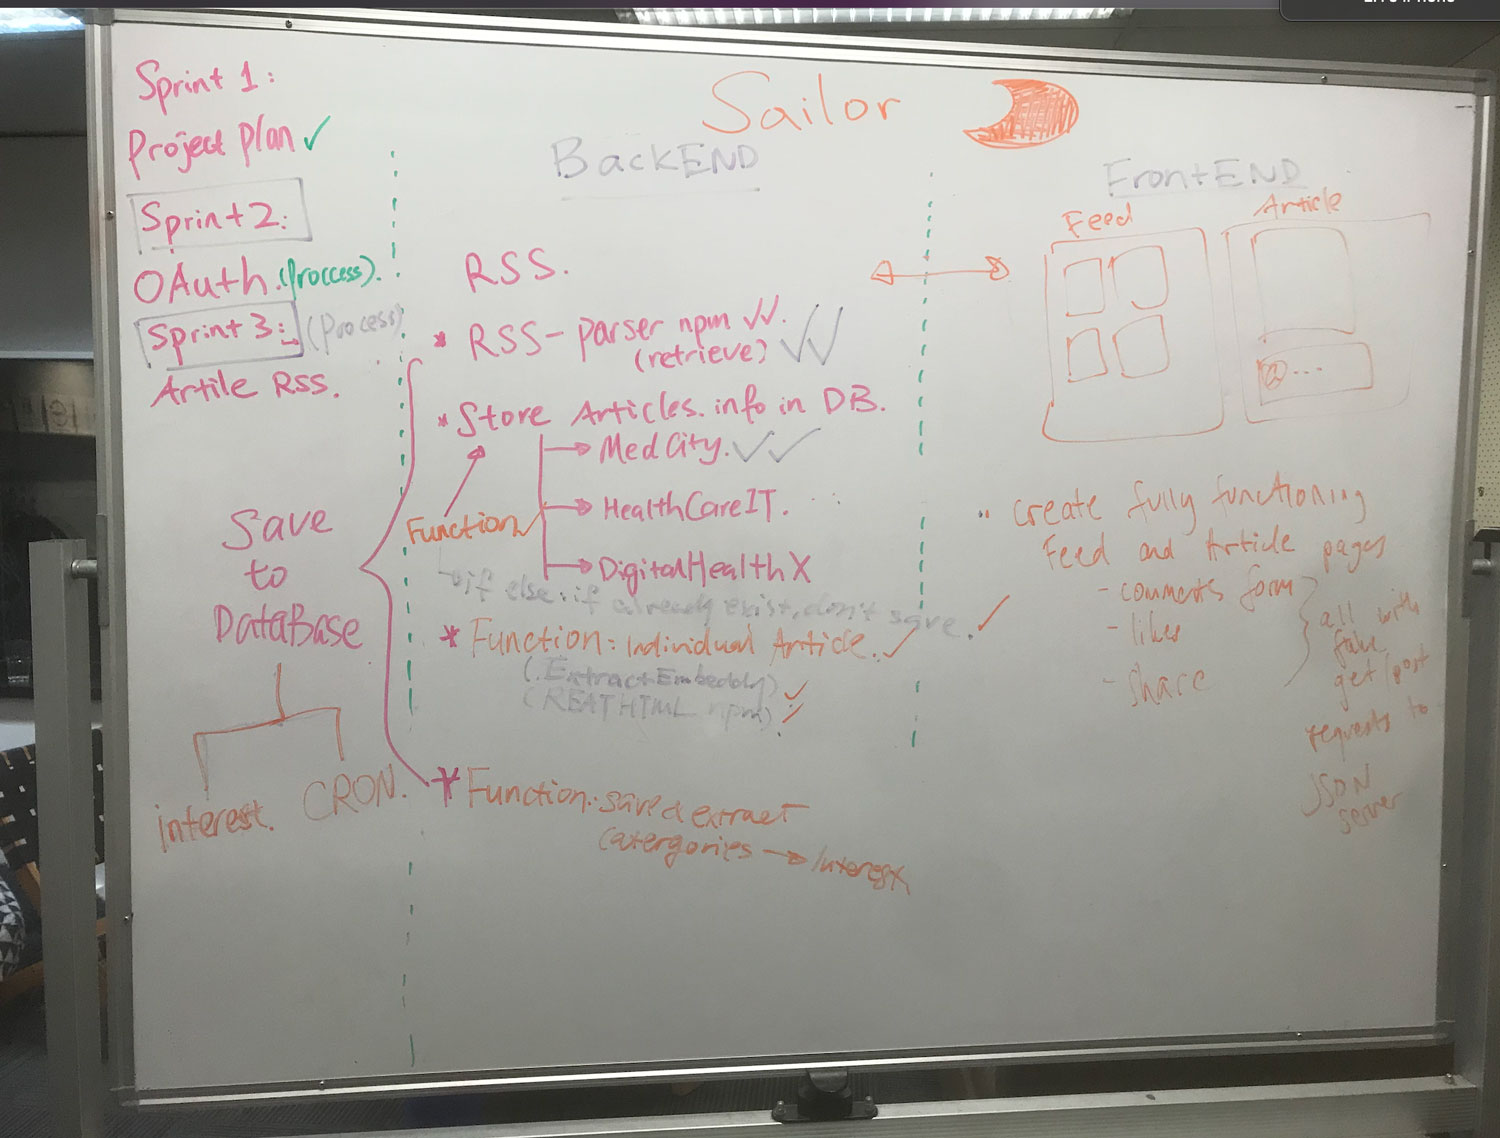 Sailor
Sprint 1:
Project plan ✓
Sprint 2:
OAuth (Proccess).
Sprint 3: (Process)
Artile RSS.
Save
to
DataBase
interest.
CRON.
BackEND
RSS.
* RSS-parser npm ✓✓.
(retrieve) ✓✓
* Store Articles. info in DB.
→ MedCity. ✓✓
Function
→ HealthCareIT.
→ DigitalHealthX
if else: if already exist, don't save. ✓
* Function: Individual Article. ✓
(.ExtractEmbeddly) ✓
(REATHTML npm) ✓
* Function: save & extract
Catergories → Interest
FrontEND
Feed
Article
@...
create fully functioning
Feed and Article pages
- comments form
- likes
- share
all with
fake
get/post
requests to
JSON
server